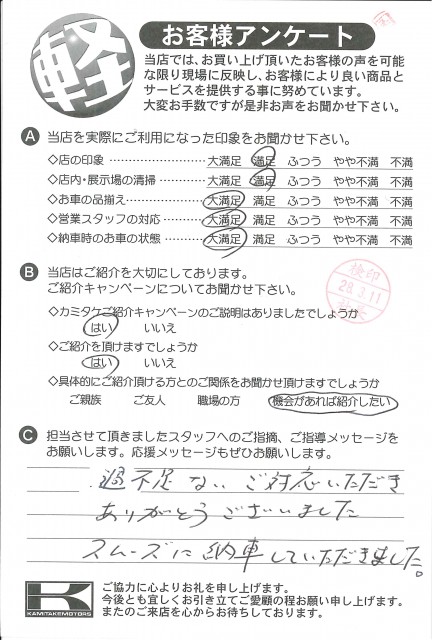 軽
お客様アンケート
当店では、お買い上げ頂いたお客様の声を可能
な限り現場に反映し、お客様により良い商品と
サービスを提供する事に努めています。
大変お手数ですが是非お声をお聞かせ下さい。
A 当店を実際にご利用になった印象をお聞かせ下さい。
◇店の印象 ………………… 大満足 満足 ふつう やや不満 不満
◇店内・展示場の清掃 ………… 大満足 満足 ふつう やや不満 不満
◇お車の品揃え……………… 大満足 満足 ふつう やや不満 不満
◇営業スタッフの対応 ………… 大満足 満足 ふつう やや不満 不満
◇納車時のお車の状態 ………… 大満足 満足 ふつう やや不満 不満
B 当店はご紹介を大切にしております。
ご紹介キャンペーンについてお聞かせ下さい。
検印
28.3.11
◇カミタケご紹介キャンペーンのご説明はありましたでしょうか
はい いいえ
◇ご紹介を頂けますでしょうか
はい いいえ
◇具体的にご紹介頂ける方とのご関係をお聞かせ頂けますでしょうか
ご親族 ご友人 職場の方 機会があれば紹介したい
C 担当させて頂きましたスタッフへのご指摘、ご指導メッセージを
お願いします。応援メッセージもぜひお願いします。
過不足ない ご対応いただき
ありがとうございました
スムーズに納車していただきました。
K
KAMITAKEMOTORS
ご協力に心よりお礼を申し上げます。
今後とも宜しくお引き立てご愛顧の程お願い申し上げます。
またのご来店を心からお待ちしております。